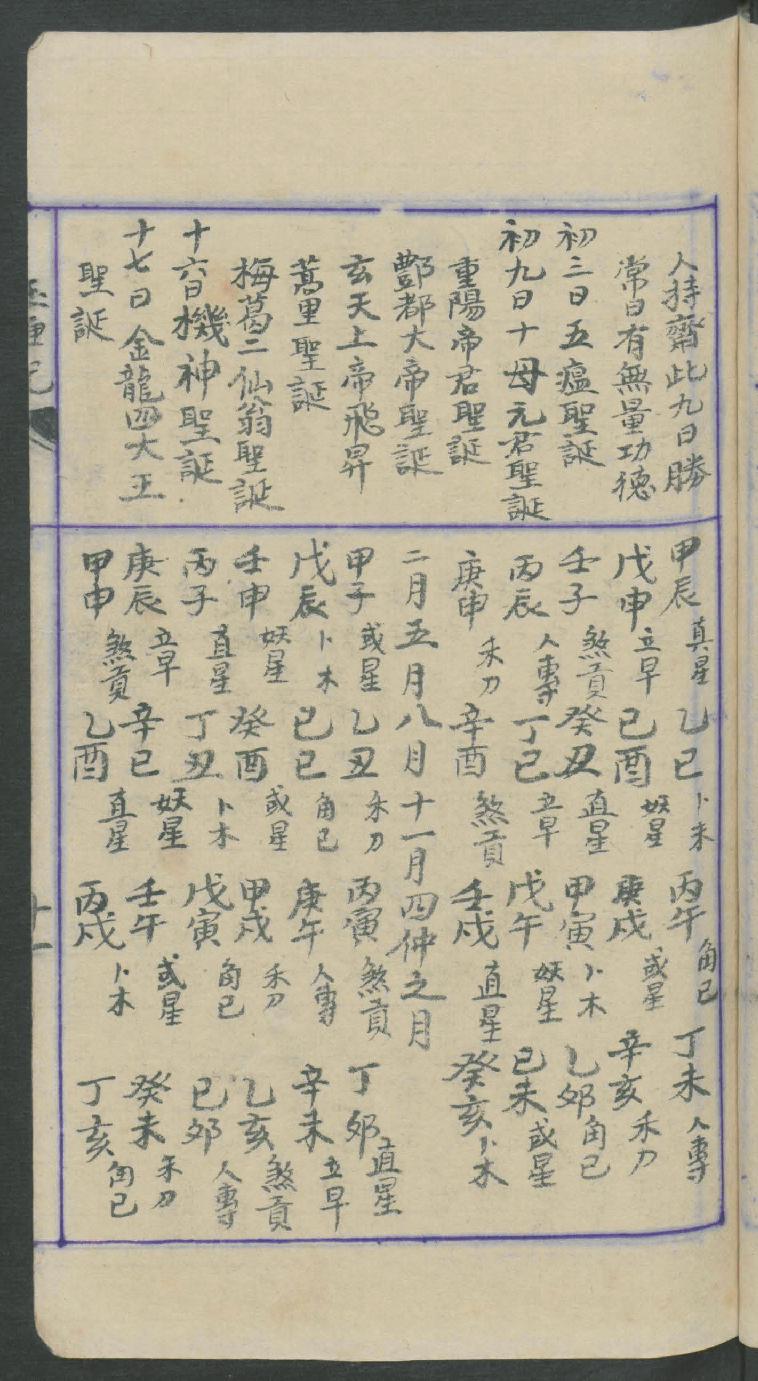 人持齋此九日勝
常日有無量功德
初三日五瘟聖誕
初九日十母元君聖誕
重陽帝君聖誕
酆都大帝聖誕
玄天上帝飛昇
蒿里聖誕
梅葛二仙翁聖誕
十六日機神聖誕
十七日金龍四大王
聖誕
甲辰 真星 乙巳 卜木 丙午 角巳 丁未 人專
戊申 立早 己酉 妖星 庚戌 或星 辛亥 禾刀
壬子 煞貢 癸丑 直星 甲寅 卜木 乙卯 角巳
丙辰 人專 丁巳 立早 戊午 妖星 己未 或星
庚申 禾刀 辛酉 煞貢 壬戌 直星 癸亥 卜木
二月五月八月十一月四仲之月
甲子 或星 乙丑 禾刀 丙寅 煞貢 丁卯 直星
戊辰 卜木 己巳 角巳 庚午 人專 辛未 立早
壬申 妖星 癸酉 或星 甲戌 禾刀 乙亥 煞貢
丙子 直星 丁丑 卜木 戊寅 角巳 己卯 人專
庚辰 立早 辛巳 妖星 壬午 或星 癸未 禾刀
甲申 煞貢 乙酉 直星 丙戌 卜木 丁亥 角巳
十一